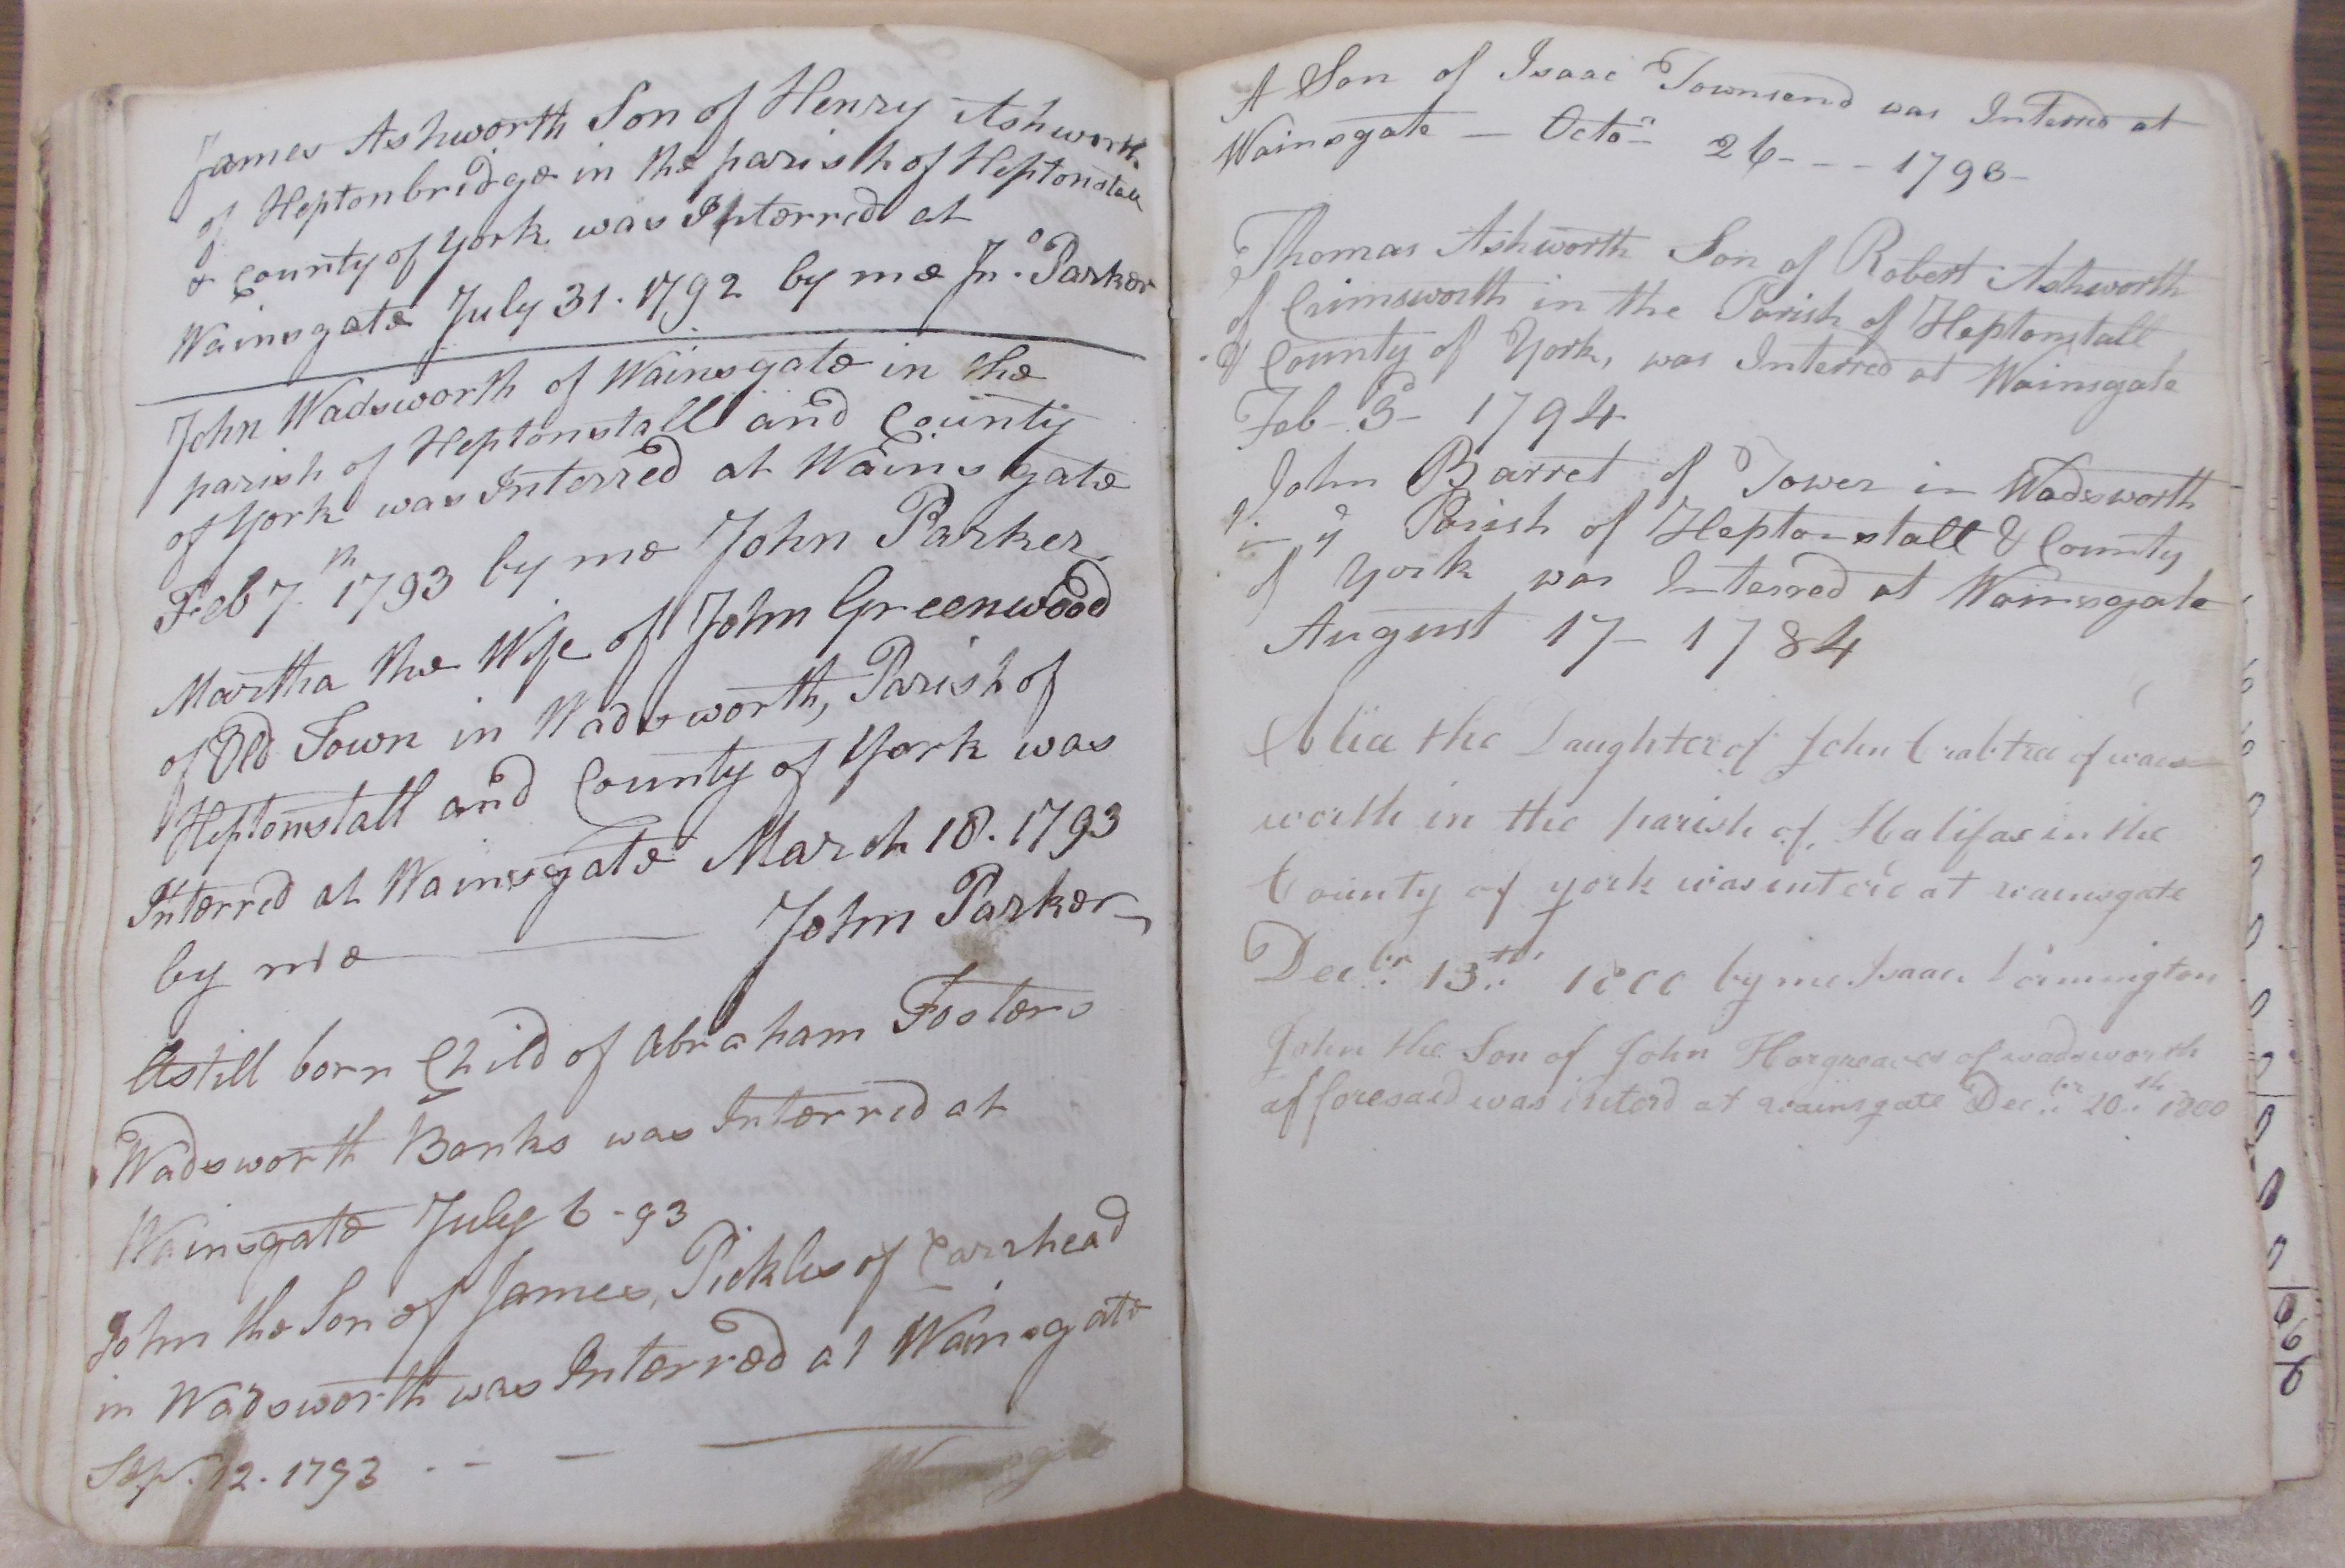 James Ashworth Son of Henry Ashworth
of Heptonbridge in the parish of Heptonstall
& County of York was Interred at
Wainsgate July 31. 1792 by me Jno. Parker
John Wadsworth of Wainsgate in the
parish of Heptonstall and County
of York was Interred at Wainsgate
Feb 7th 1793 by me John Parker
Martha the Wife of John Greenwood
of Old Town in Wadsworth, Parish of
Heptonstall and County of York was
Interred at Wainsgate March 18. 1793
by me John Parker
A still born Child of Abraham Fosters
Wadsworth Banks was Interred at
Wainsgate July 6 - 93
John the Son of James Pickles of Carrhead
in Wadsworth was Interred at Wainsgate
Sep. 12. 1793
Wainsgate
A Son of Isaac Townsend was Interred at
Wainsgate — Octo 26 - - - 1793 -
Thomas Ashworth Son of Robert Ashworth
of Crimsworth in the Parish of Heptonstall
& County of York, was Interred at Wainsgate
Feb - 3 - 1794
John Barret of Tower in Wadsworth
in ye Parish of Heptonstall & County
of York was Interred at Wainsgate
August 17 - 1784
Alice the Daughter of John Crabtree of wads
worth in the parish of Halifax in the
County of york was intere'd at wainsgate
Decbr. 13th. 1800 by me Isaac
John the Son of John Hargreaves of wadsworth
afforesaid was interd at wainsgate Decbr. 20th. 1800